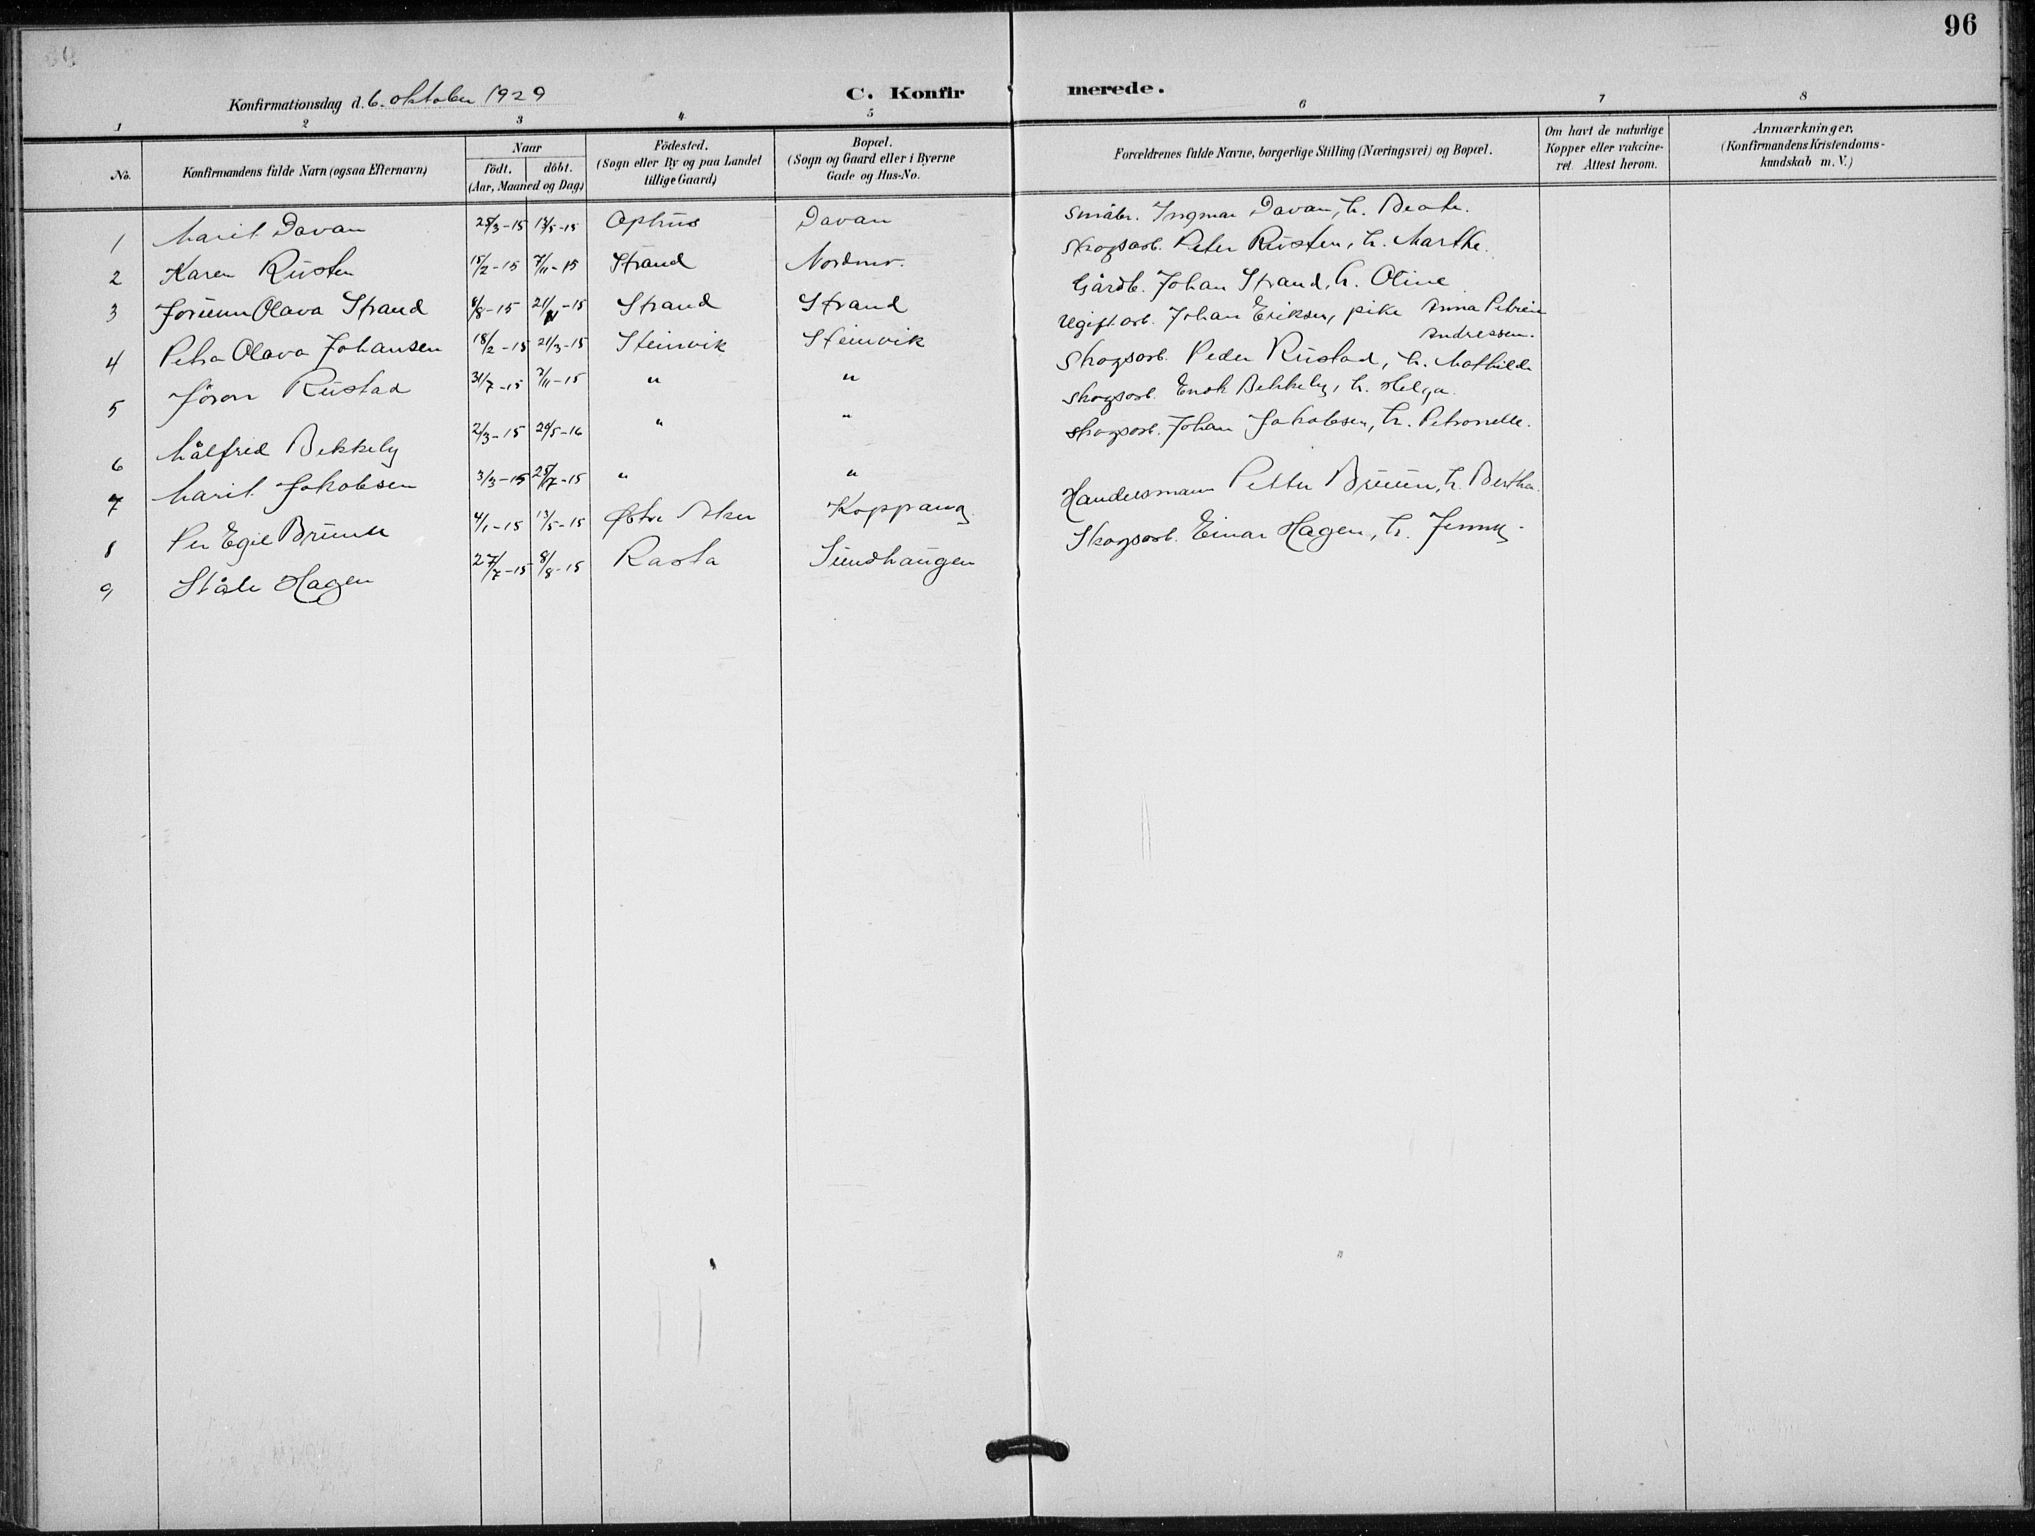 96
Konfirmationsdag d. 6. oktober 1929
C. Konfirmerede.
1 2 3 4 5 6 7 8
No.
Konfirmandens fulde Navn (ogsaa Efternavn)
Naar
født. døbt.
(Aar, Maaned og Dag)
Fødested.
(Sogn eller By og paa Landet
tillige Gaard)
Bopæl.
(Sogn og Gaard eller i Byerne
Gade og Hus-No.
Forældrenes fulde Navne, borgerlige Stilling (Næringsvei) og Bopæl.
Om havt de naturlige
Kopper eller vakcine-
ret. Attest herom.
Anmærkninger,
(Konfirmandens Kristendoms-
kundskab m. V.)
1 Marit Davan 25/3-15 13/5-15 Ophus Davan Småbr. Ingmar Davan, h. Beate.
2 Karen Rusten 15/2-15 7/11-15 Strand Nordmo. Skogsarb. Peter Rusten, h. Marthe.
3 Jorunn Olava Strand 8/8-15 21/11-15 Strand Strand Gårdb. Johan Strand, h. Oline
4 Petra Olava Johansen 18/2-15 21/3-15 Steinvik Steinvik Ugift arb. Johan Eriksen, pike Anna Petrine
Andreassen.
5 Jöron Rustad 31/7-15 7/11-15 " " Skogsarb. Peder Rustad, h. Mathilde
6 Målfred Bekkely 2/3-15 24/5-16 " " Skogsarb. Enok Bekkely, h. Helga.
7 Marit Jakobsen 3/3-15 25/7-15 " " Skogsarb. Johan Jakobsen, h. Petronelle.
8 Per Egil Bruun 4/1-15 13/5-15 Østre Aker Koppang Handelsmann Petter Bruun, h. Bertha.
9 Ståle Hagen 27/7-15 8/8-15 Rasta Sundhaugen Skogsarb. Einar Hagen, h. Jenny.